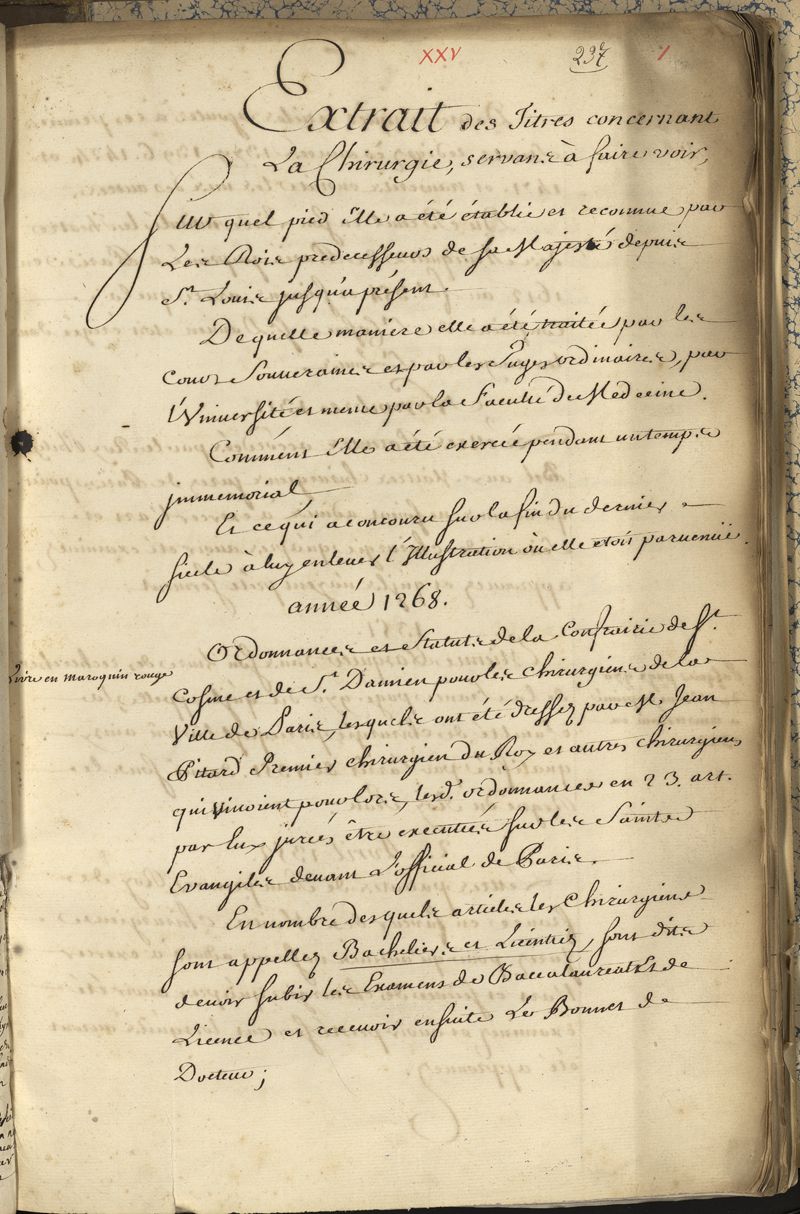 XXV
237
1
Extrait des Titres concernant
La Chirurgie, servans à faire voir,
Sur quel pied Elle a été établie et reconnue par
Les Rois predecesseurs de sa Majesté depuis
St. Louis jusqu'a présent.
De quelle maniere elle a été traitée par les
Cours Souveraines et par les Juges ordinaires, par
l'Université et meme par la Faculté de Medecine.
Comment Elle a été exercée pendant un temps
jmmemorial,
Et ce qui a concouru sur la fin du dernier
siecle à luy enlever l'Illustration où elle etoit parvenuë.
année 1268.
Ordonnances et Statuts de la Confrairie de St.
Livre en maroquin rouge
Cosme et de St. Damien pour les chirurgiens de la
Ville de Paris, lesquels ont été dressez par M. Jean
Pitard Premier chirurgien du Roy et autres chirurgiens
qui vivoient pour lors, lesd. ordonnances en 23. art.
par Eux jurées être executées sur les Saints
Evangiles devant L'official de Paris.
En nombre desquels articles les Chirurgiens
sont appellez Bacheliers et Licentiez, sont dits
devoir subir les Examens de Baccalaureat et de
Licence et recevoir ensuite Le Bonnet de
Docteur;